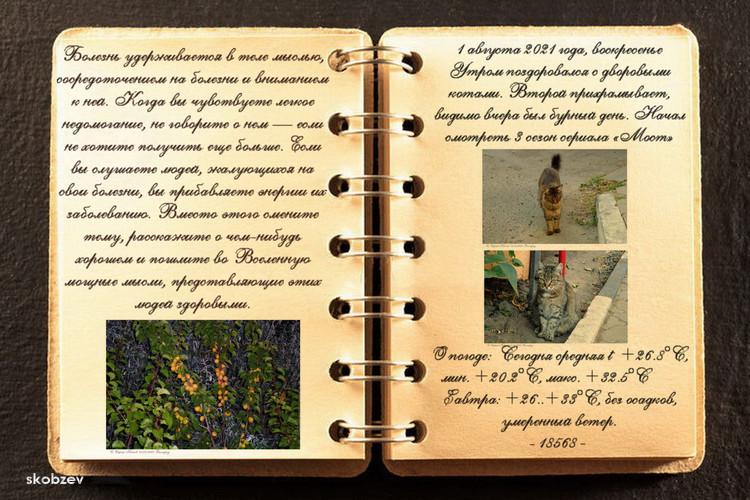 Болезнь удерживается в теле мыслью,
сосредоточением на болезни и вниманием
к ней. Когда вы чувствуете легкое
недомогание, не говорите о нем — если
не хотите получить еще больше. Если
вы слушаете людей, жалующихся на
свои болезни, вы прибавляете энергии их
заболеванию. Вместо этого смените
тему, расскажите о чем-нибудь
хорошем и пошлите во Вселенную
мощные мысли, представляющие этих
людей здоровыми.
1 августа 2021 года, воскресенье
Утром поздоровался с дворовыми
котами. Второй прихрамывает,
видимо вчера был бурный день. Начал
смотреть 3 сезон сериала «Мост»
О погоде: Сегодня средняя t +26.3°C,
мин. +20.2°C, макс. +32.5°C
Завтра: +26..+33°C, без осадков,
умеренный ветер.
- 18568 -
skobzev